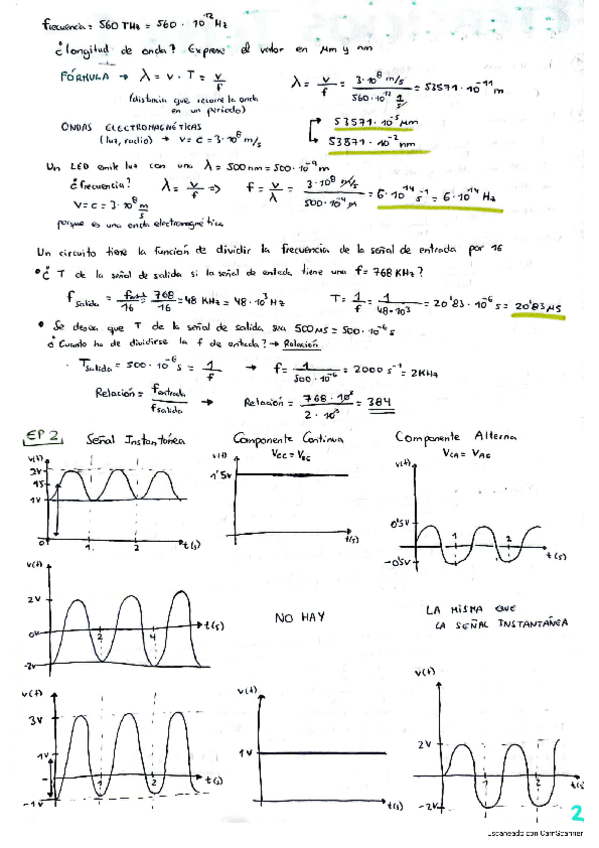 frecuencia = 560 THz = 560 · 10^12 Hz
¿longitud de onda? Exprese el valor en μm y nm
FÓRMULA → λ = v · T = v/f
λ = v/f = 3·10^8 m/s / 560·10^12 1/s = 53571·10^-11 m
(distancia que recorre la onda
en un periodo)
ONDAS ELECTROMAGNÉTICAS
(luz, radio) → v = c = 3·10^8 m/s
53571·10^-5 μm
53571·10^-2 nm
Un LED emite luz con una λ = 500 nm = 500·10^-9 m
¿frecuencia? λ = v/f => f = v/λ = 3·10^8 m/s / 500·10^-9 m = 6·10^14 s^-1 = 6·10^14 Hz
v = c = 3·10^8 m/s
porque es una onda electromagnética
Un circuito tiene la función de dividir la frecuencia de la señal de entrada por 16
• ¿ T de la señal de salida si la señal de entada tiene una f = 768 KHz?
f salida = fent/16 = 768/16 = 48 KHz = 48·10^3 Hz
T = 1/f = 1/48·10^3 = 20'83·10^-6 s = 20'83 μs
• Se desea que T de la señal de salida sea 500 μs = 500·10^-6 s
¿Cuanto ha de dividirse la f de entada? → Relación
· Tsalida = 500·10^-6 s = 1/f → f = 1/500·10^-6 = 2000 s^-1 = 2KHz
Relación = fentrada/fsalida → Relación = 768·10^3/2·10^3 = 384
EP 2 Señal Instantánea Componente Continua Componente Alterna
Vcc = VDC
VCA = VAC
v(t)
2V
1'5
1V
0
1
2
t(s)
v(t)
1'5V
t(s)
v(t)
0'5V
-0'5V
1
2
t(s)
v(t)
2V
0V
-2V
2
4
t(s)
NO HAY
LA MISMA QUE
LA SEÑAL INSTANTÁNEA
v(t)
3V
1V
-1V
1
2
t(s)
v(t)
1V
t(s)
v(t)
2V
-2V
1
2
t(s)
2
Escaneado con CamScanner